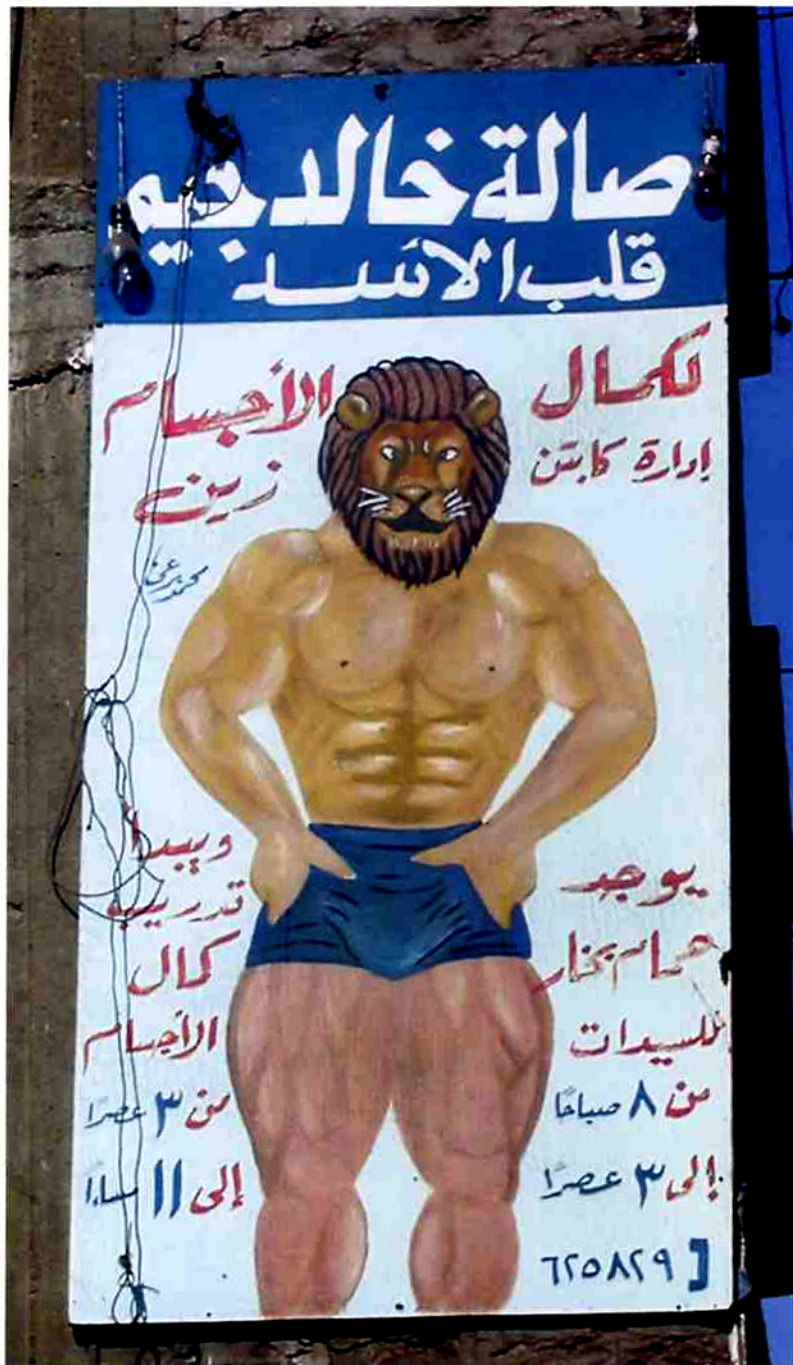 صالة خالد جيم
قلب الأسد
لكمال الأجسام
إدارة كابتن زين
محمد
يوجد
حمام بخار
للسيدات
من ٨ صباحًا
إلى ٣ عصرًا
ت ٦٢٥٨٢٩
ويبدأ
تدريب
كمال
الأجسام
من ٣ عصرًا
إلى ١١ مساءًا